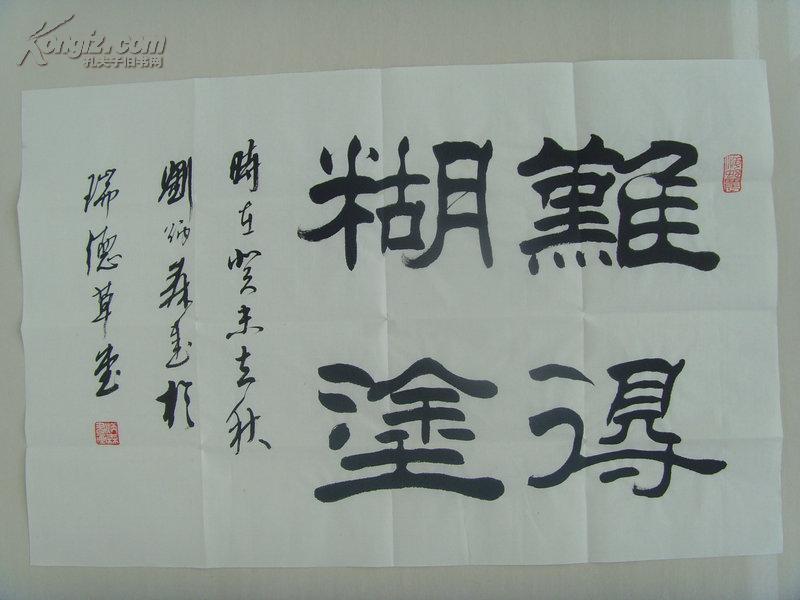 難得
糊塗
時在癸未立秋
劉炳森書於
瑞德草堂
Kongfz.com
孔夫子旧书网